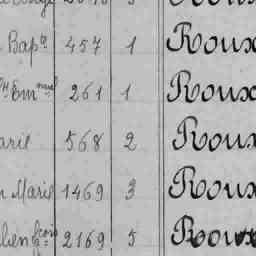 Bapte 457 1 Roux
Emmuel 261 1 Roux
arie 568 2 Roux
Marie 1469 3 Roux
lien fçois 2169 5 Roux